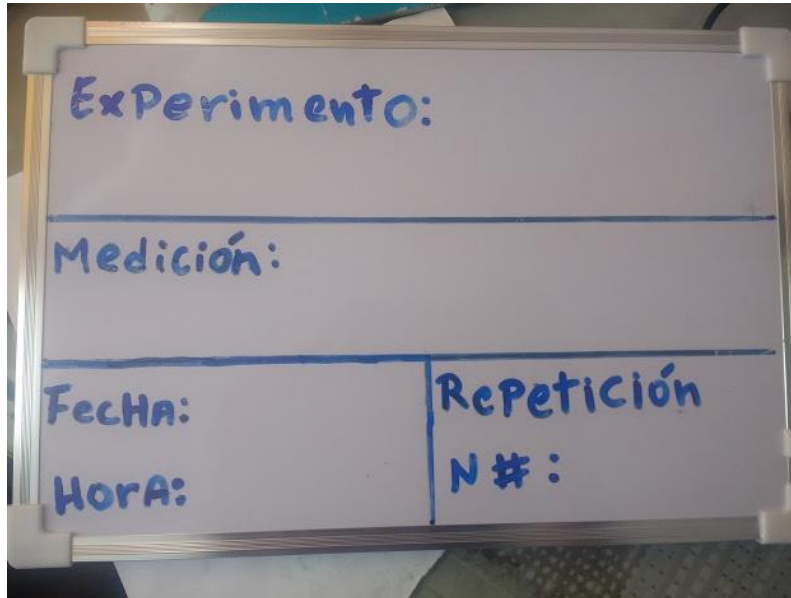 Experimento:
Medición:
Fecha:
Hora:
Repetición
N#: